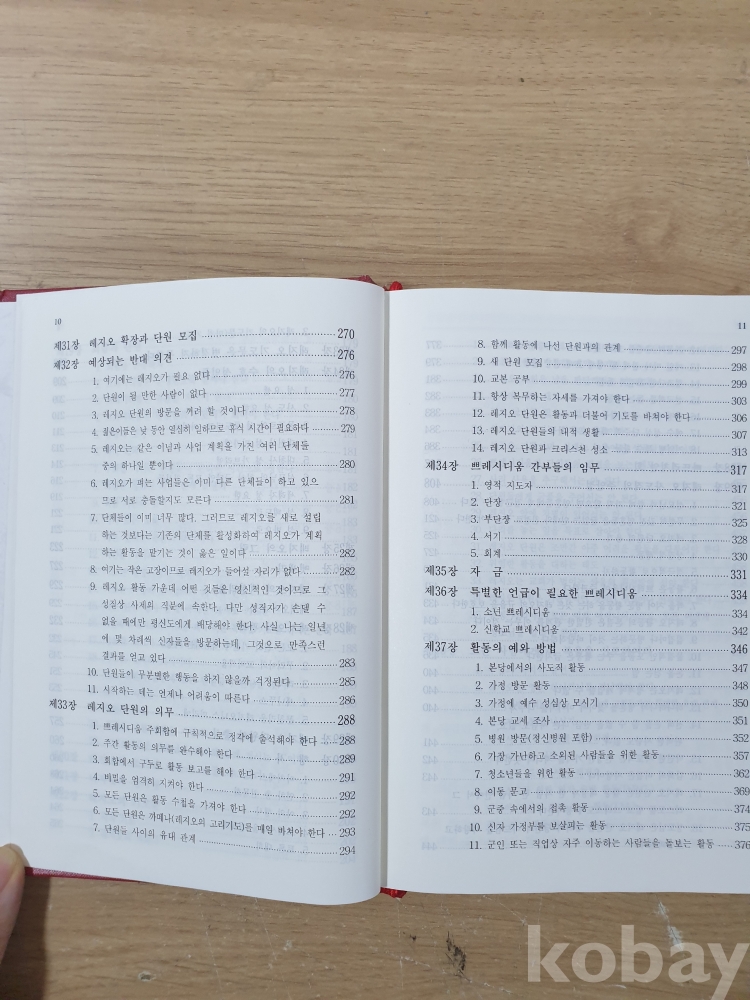 10
제31장 레지오 확장과 단원 모집 270
제32장 예상되는 반대 의견 276
1. 여기에는 레지오가 필요 없다 276
2. 단원이 될 만한 사람이 없다 277
3. 레지오 단원의 방문을 꺼려 할 것이다 278
4. 젊은이들은 낮 동안 열심히 일하므로 휴식 시간이 필요하다 279
5. 레지오는 같은 이념과 사업 계획을 가진 여러 단체들
중의 하나일 뿐이다 280
6. 레지오가 꾀는 사업들은 이미 다른 단체들이 하고 있으
므로 서로 충돌할지도 모른다 281
7. 단체들이 이미 너무 많다. 그러므로 레지오를 새로 설립
하는 것보다는 기존의 단체를 활성화하여 레지오가 계획
하는 활동을 맡기는 것이 옳은 일이다 282
8. 여기는 작은 고장이므로 레지오가 들어설 자리가 없다 282
9. 레지오 활동 가운데 어떤 것들은 영신적인 것이므로 그
성질상 사제의 직분에 속한다. 다만 성직자가 손댈 수
없을 때에만 평신도에게 배당해야 한다. 사실 나는 일년
에 몇 차례씩 신자들을 방문하는데, 그것으로 만족스런
결과를 얻고 있다 283
10. 단원들이 무분별한 행동을 하지 않을까 걱정된다 285
11. 시작하는 데는 언제나 어려움이 따른다 286
제33장 레지오 단원의 의무 288
1. 쁘레시디움 주회합에 규칙적으로 정각에 출석해야 한다 288
2. 주간 활동의 의무를 완수해야 한다 289
3. 회합에서 구두로 활동 보고를 해야 한다 291
4. 비밀을 엄격히 지켜야 한다 292
5. 모든 단원은 활동 수첩을 가져야 한다 292
6. 모든 단원은 까떼나(레지오의 고리기도)를 매일 바쳐야 한다 293
7. 단원들 사이의 유대 관계 294
11
8. 함께 활동에 나선 단원과의 관계 297
9. 새 단원 모집 298
10. 교본 공부 299
11. 항상 복무하는 자세를 가져야 한다 303
12. 레지오 단원은 활동과 더불어 기도를 바쳐야 한다 306
13. 레지오 단원들의 내적 생활 307
14. 레지오 단원과 크리스천 성소 313
제34장 쁘레시디움 간부들의 임무 317
1. 영적 지도자 317
2. 단장 321
3. 부단장 325
4. 서기 328
5. 회계 330
제35장 자 금 331
제36장 특별한 언급이 필요한 쁘레시디움 334
1. 소년 쁘레시디움 334
2. 신학교 쁘레시디움 342
제37장 활동의 예와 방법 346
1. 본당에서의 사도직 활동 347
2. 가정 방문 활동 348
3. 가정에 예수 성심상 모시기 350
4. 본당 교세 조사 351
5. 병원 방문(정신병원 포함) 352
6. 가장 가난하고 소외된 사람들을 위한 활동 357
7. 청소년들을 위한 활동 362
8. 이동 문고 369
9. 군중 속에서의 접촉 활동 374
10. 신자 가정부를 보살피는 활동 375
11. 군인 또는 직업상 자주 이동하는 사람들을 돌보는 활동 376
kobay